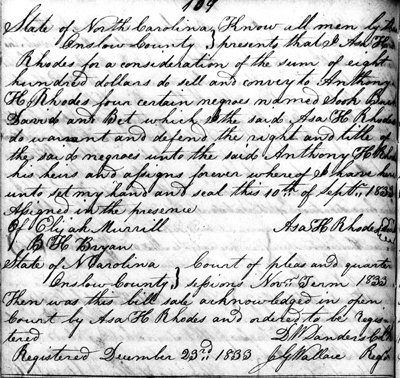 109
State of North Carolina } Know all men by the
Onslow County } presents that I Asa H
Rhodes for a consideration of the sum of eight
hundred dollars do sell and convey to Anthony
H Rhodes four certain negroes named Sook
David and Bet which I the said Asa H Rhodes
do warrant and defend the right and title of
the said negroes unto the said Anthony H Rho
his heirs and assigns forever whereof I have her
unto set my hand and seal this 10th of Sept. 1833
Assigned in the presence
Of Elijah Murrill Asa H Rhodes
B H Bryan
State of N Carolina } Court of pleas and quarter
Onslow County } sessions Nov. Term 1833
Then was this bill sale acknowledged in open
Court by Asa H Rhodes and ordered to be regis-
tered D W Sanders
Registered December 23rd 1833 J G Wallace Regr